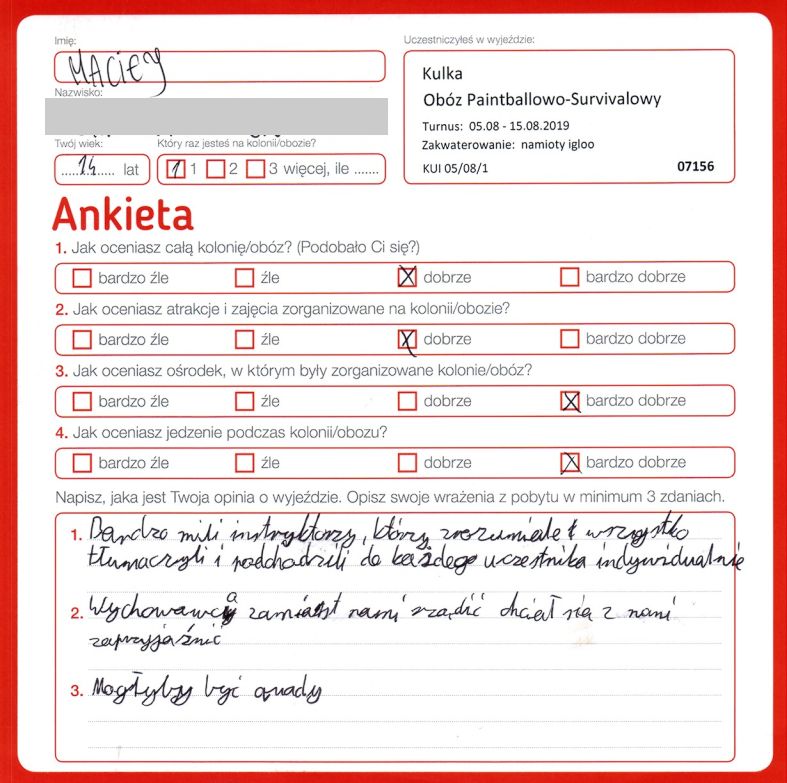 Imię:
MACIEY
Nazwisko:
Twój wiek:
Który raz jesteś na kolonii/obozie?
14 lat
1 2 3 więcej, ile .......
Uczestniczyłeś w wyjeździe:
Kulka
Obóz Paintballowo-Survivalowy
Turnus: 05.08 - 15.08.2019
Zakwaterowanie: namioty igloo
KUI 05/08/1 07156
Ankieta
1. Jak oceniasz całą kolonię/obóz? (Podobało Ci się?)
bardzo źle źle dobrze bardzo dobrze
2. Jak oceniasz atrakcje i zajęcia zorganizowane na kolonii/obozie?
bardzo źle źle dobrze bardzo dobrze
3. Jak oceniasz ośrodek, w którym były zorganizowane kolonie/obóz?
bardzo źle źle dobrze bardzo dobrze
4. Jak oceniasz jedzenie podczas kolonii/obozu?
bardzo źle źle dobrze bardzo dobrze
Napisz, jaka jest Twoja opinia o wyjeździe. Opisz swoje wrażenia z pobytu w minimum 3 zdaniach.
1. Bardzo mili instryktorzy, którzy zrozumiale wszystko
tłumaczyli i poddchodzili do każdego uczestnika indywidualnie
2. Wychowawca zamiast nami rządzić chciał się z nami
zaprzyjaźnić
3. Mogłyby być quady